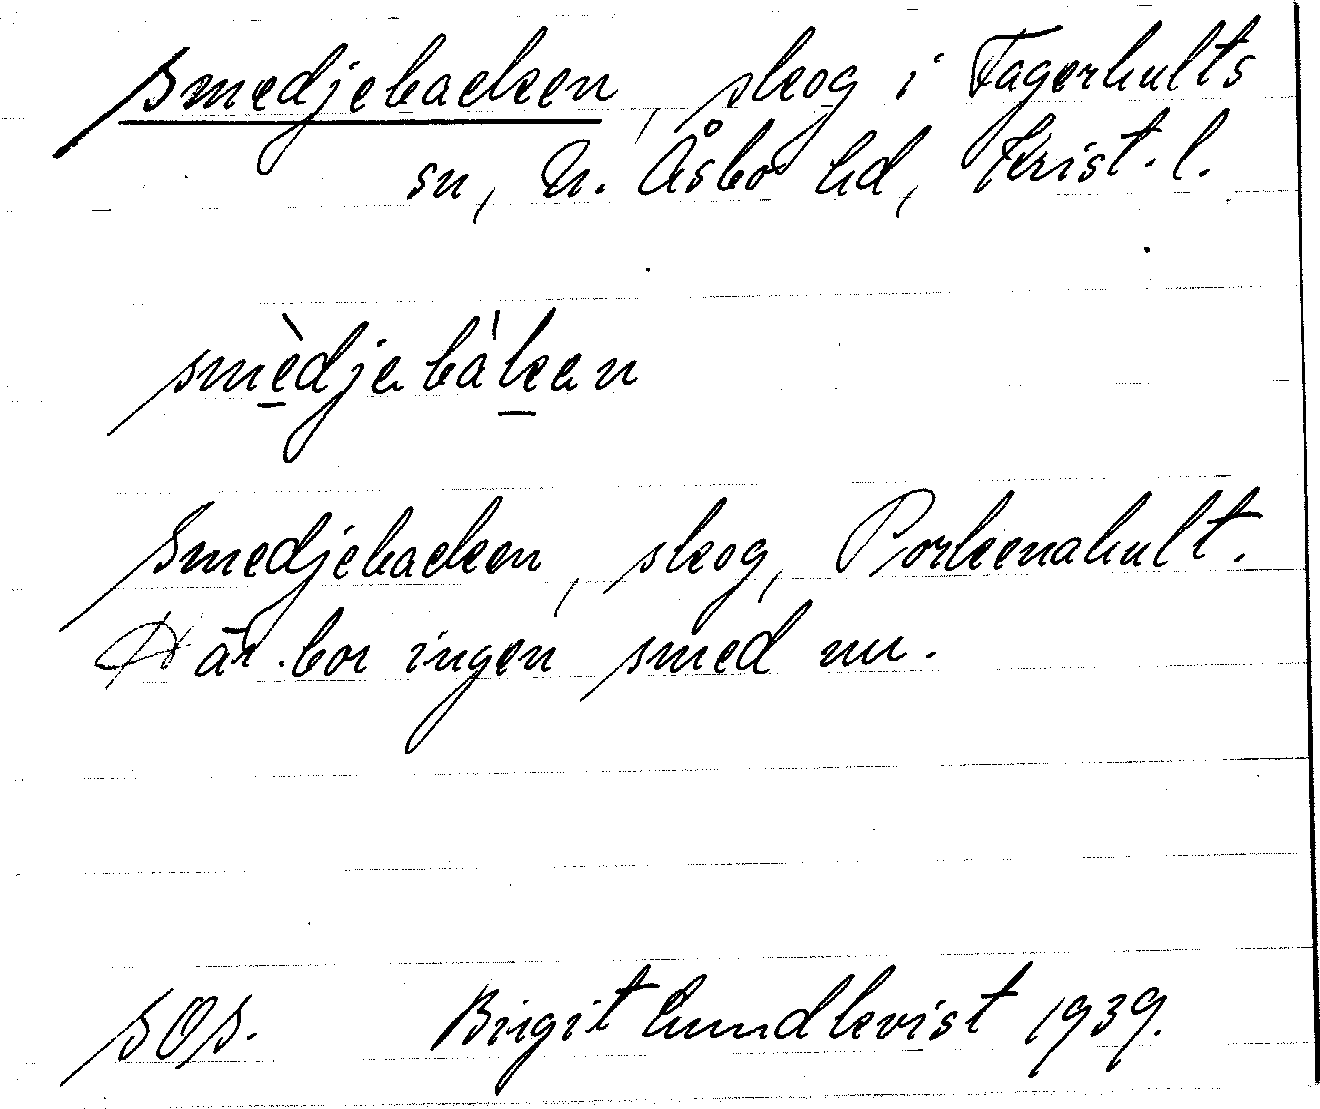 Smedjebacken, skog i Fagerhults
sn, N. Åsbo hd, Krist. l.
smèdjebáken
Smedjebacken, skog, Porkenahult.
Här bor ingen smed nu.
SOS. Birgit Lundkvist 1939.